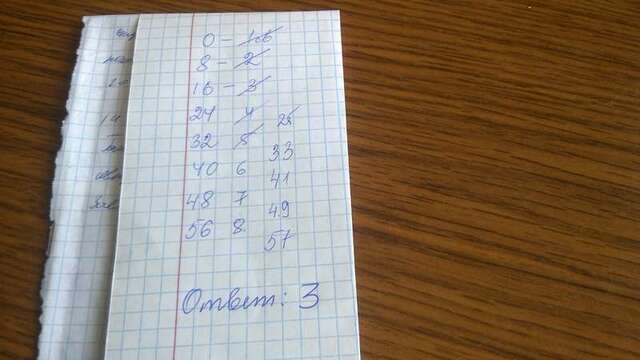 0 -
8 - 2
16 - 3
24 4 25
32 5
33
40 6
41
48 7
49
56 8
57
Ответ: 3